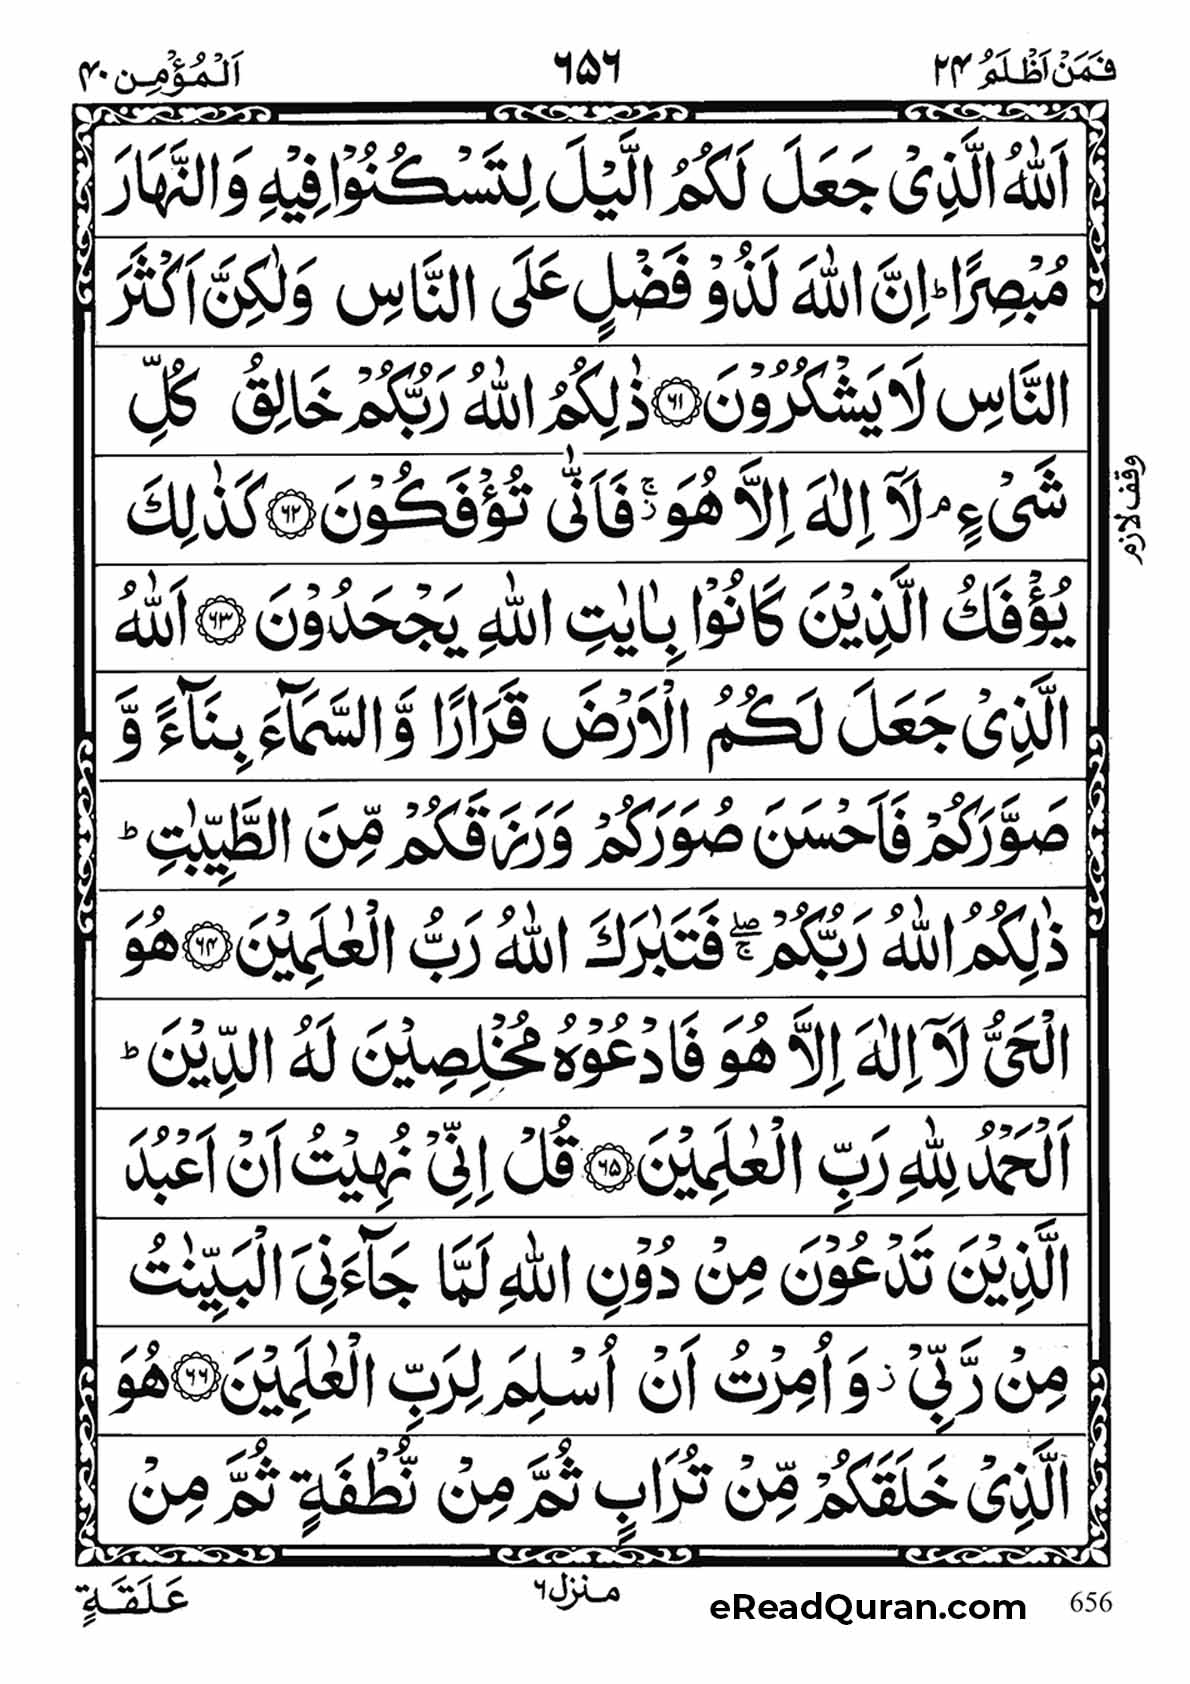 فَمَنْ اَظْلَمُ ۲۴ ۶۵۶ اَلْمُؤْمِن ۴۰
اَللّٰهُ الَّذِیْ جَعَلَ لَكُمُ الَّیْلَ لِتَسْكُنُوْا فِیْهِ وَ النَّهَارَ
مُبْصِرًا ؕ اِنَّ اللّٰهَ لَذُوْ فَضْلٍ عَلَی النَّاسِ وَلٰكِنَّ اَكْثَرَ
النَّاسِ لَا یَشْكُرُوْنَ ﴿۶۱﴾ ذٰلِكُمُ اللّٰهُ رَبُّكُمْ خَالِقُ كُلِّ
شَیْءٍ ۘ لَاۤ اِلٰهَ اِلَّا هُوَ ۚ ز فَاَنّٰی تُؤْفَكُوْنَ ﴿۶۲﴾ كَذٰلِكَ
یُؤْفَكُ الَّذِیْنَ كَانُوْا بِاٰیٰتِ اللّٰهِ یَجْحَدُوْنَ ﴿۶۳﴾ اَللّٰهُ
الَّذِیْ جَعَلَ لَكُمُ الْاَرْضَ قَرَارًا وَّ السَّمَآءَ بِنَآءً وَّ
صَوَّرَكُمْ فَاَحْسَنَ صُوَرَكُمْ وَ رَزَقَكُمْ مِّنَ الطَّیِّبٰتِ ؕ
ذٰلِكُمُ اللّٰهُ رَبُّكُمْ ۖۚ فَتَبٰرَكَ اللّٰهُ رَبُّ الْعٰلَمِیْنَ ﴿۶۴﴾ هُوَ
الْحَیُّ لَاۤ اِلٰهَ اِلَّا هُوَ فَادْعُوْهُ مُخْلِصِیْنَ لَهُ الدِّیْنَ ؕ
اَلْحَمْدُ لِلّٰهِ رَبِّ الْعٰلَمِیْنَ ﴿۶۵﴾ قُلْ اِنِّیْ نُهِیْتُ اَنْ اَعْبُدَ
الَّذِیْنَ تَدْعُوْنَ مِنْ دُوْنِ اللّٰهِ لَمَّا جَآءَنِیَ الْبَیِّنٰتُ
مِنْ رَّبِّیْ ز وَ اُمِرْتُ اَنْ اُسْلِمَ لِرَبِّ الْعٰلَمِیْنَ ﴿۶۶﴾ هُوَ
الَّذِیْ خَلَقَكُمْ مِّنْ تُرَابٍ ثُمَّ مِنْ نُّطْفَةٍ ثُمَّ مِنْ
وقف لازم
عَلَقَةٍ
منزل ۶
eReadQuran.com
656